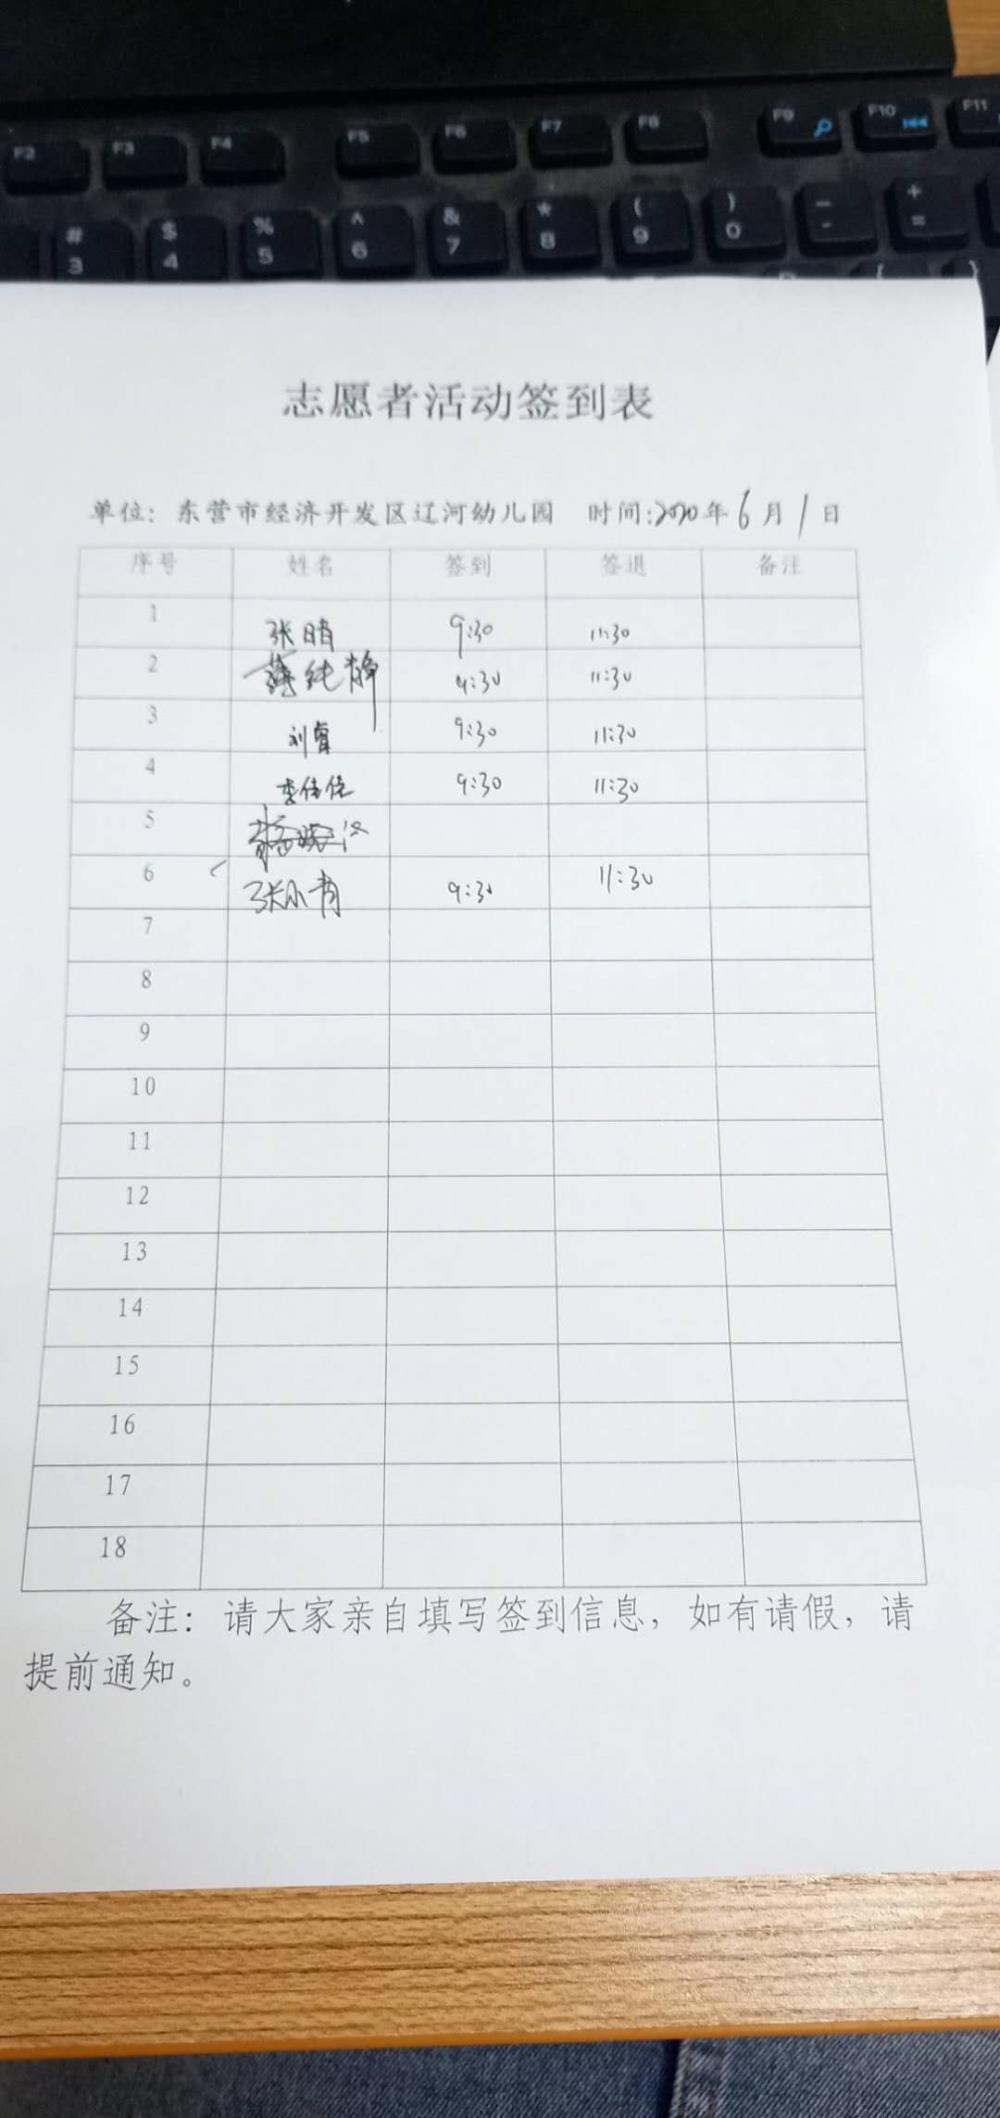 F2 F3 F4 F5 F6 F7 F8 F9 F10 F11
# $ % ^ & * ( ) _ +
3 4 5 6 7 8 9 0 - =
{ }
志愿者活动签到表
单位：东营市经济开发区辽河幼儿园 时间:2020年6月1日
序号 姓名 签到 签退 备注
1 张晴 9:30 11:30
2 薛纯静 9:30 11:30
3 刘睿 9:30 11:30
4 李倩倩 9:30 11:30
5
6 张小青 9:30 11:30
7
8
9
10
11
12
13
14
15
16
17
18
备注：请大家亲自填写签到信息，如有请假，请
提前通知。